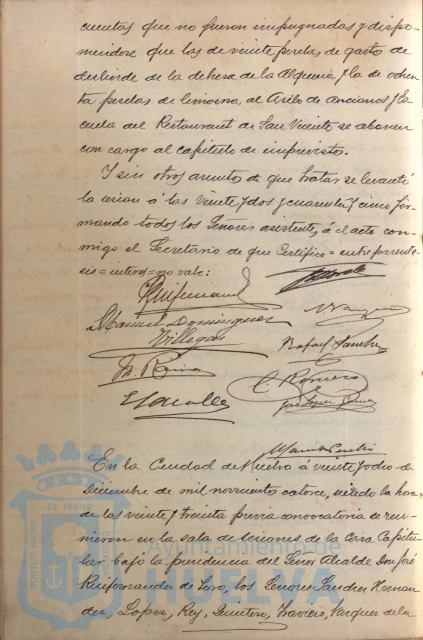 cuentas que no fueron impugnadas y dispo-
niendose que las de veinte pesetas, de gastos de
deslinde de la dehesa de la Alqueria y la de ochen-
ta pesetas de limosna al Asilo de Ancianos y la
cuenta del Restaurant de San Vicente se abonen
con cargo al capitulo de imprevistos.
Y sin otros asuntos de que tratar se levantó
la sesion á las veinte y dos y cuarenta y cinco fir-
mando todos los Señores asistentes, á el acto con-
migo el Secretario de que Certifico = entre parente-
sis = interes = no vale:
Manuel Dominguez
Villegas
Vazquez
Rafael Sanchez
C. Romero
En la Ciudad de Huelva á veinte y ocho de
Diciembre de mil novecientos catorce, siendo la hora
de las veinte y treinta previa convocatoria se reu-
nieron en la sala de sesiones de la Casa Capitu-
lar bajo la presidencia del Señor Alcalde Don José
Ruifernandez de Toro, los Señores Sanchez Hernan-
dez, Lopez, Rey, Quintero, Traviero, Vazquez de la
Ayuntamiento de
HUELVA
PORTUS MARIS ET TERRE